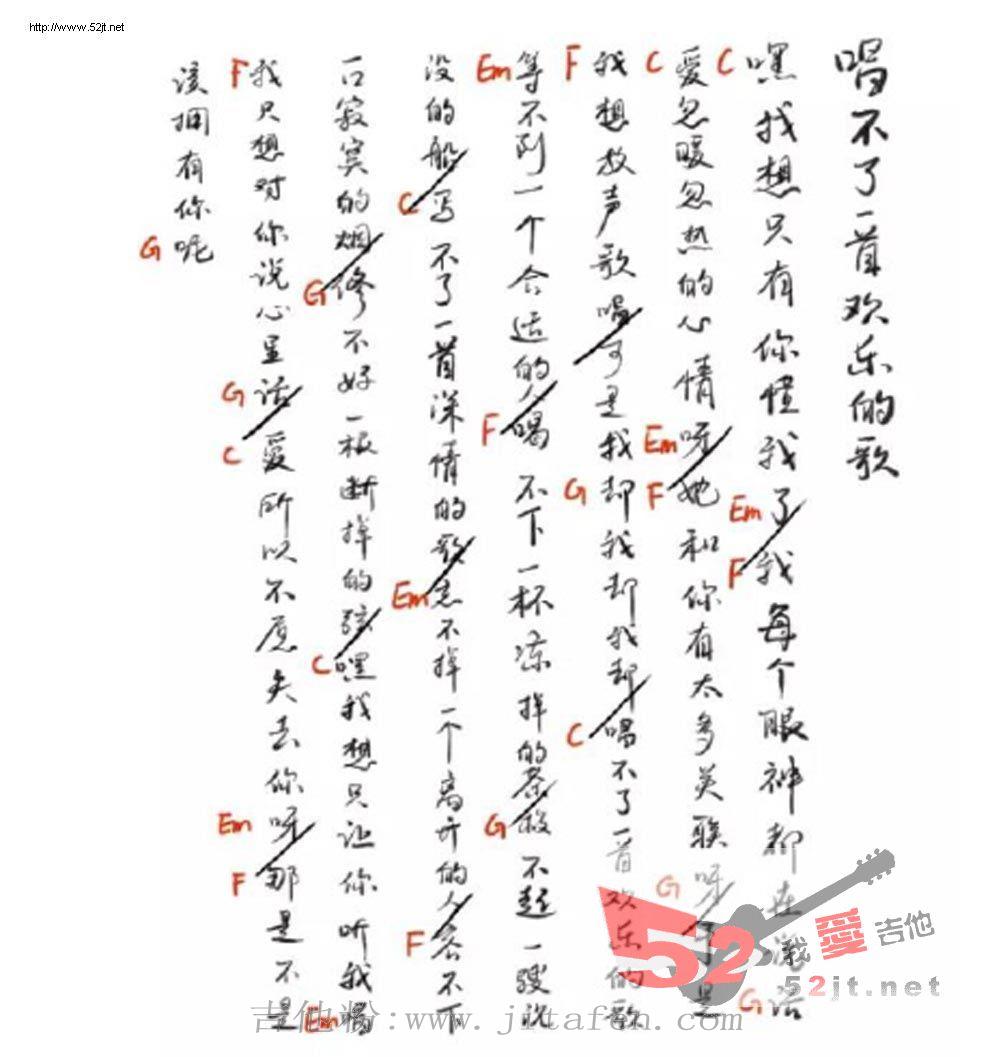 http://www.52jt.net
唱不了一首欢乐的歌
C 嘿我想只有你懂我 Em 了 F 我每个眼神都在说 G 话
C 爱忽暖忽热的心情 Em 呀 F 她和你有太多关联 G 呀于是
F 我想放声歌唱可是我 G 却我却我却 C 唱不了一首欢乐的歌
Em 等不到一个合适的人 F 喝不下一杯凉掉的茶 G 救不起一艘沉
没的船 C 写不了一首深情的歌 Em 忘不掉一个离开的人 F 吞不下
一口寂寞的烟 G 修不好一根断掉的弦 C 嘿我想只让你听我 Em 唱
F 我只想对你说心里 G 话 C 爱所以不愿失去你 Em 呀 F 那是不是
该拥有你 G 呢
52我爱吉他
52jt.net
吉他粉:www.jitafen.com